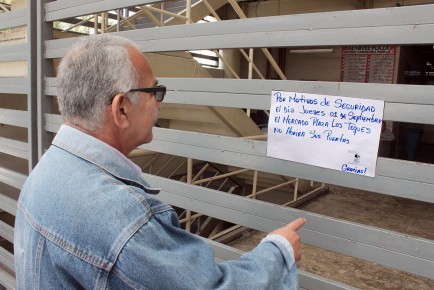 Por Motivos de Seguridad
El Día Jueves 01 de Septiembre
El Mercado Plaza Los Teques
No Abrira Sus Puertas
Gracias!